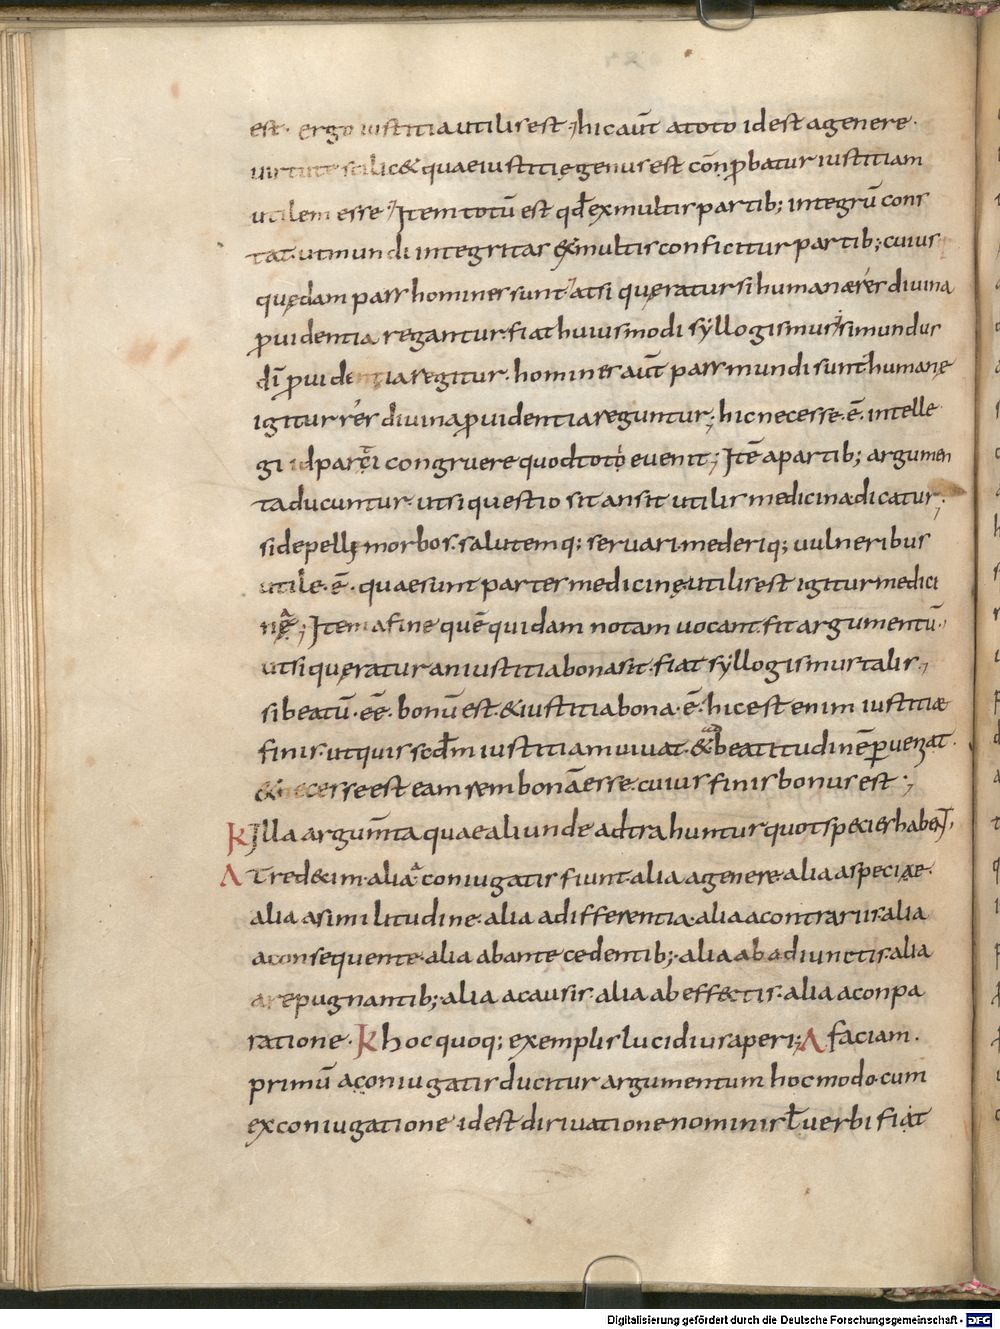 est· ergo iustitia utilis est; hic aut̄ a toto id est a genere·
uirtute scilic& quae iustitię genus est cōp̱batur iustitiam
utilem esse; Item totū est qđ ex multis partib; integrū cons
tat· ut mundi integritas &multis conficitur partib; cuius
quędam pars homines sunt; at si quęratur si humanæ res diuina
p̱uidentia regantur· fiat huiusmodi syllogismus; si mundus
dī p̱uidentia regitur· homines aut̄ pars mundi sunt· humanę
igitur res diuina p̱uidentia reguntur; hic necesse·ē· intelle
gi id parti congruere quod toto euenit; Itē a partib; argumen
ta ducuntur· ut si questio sit an sit utilis medicina dicatur·;
si depellę morbos· salutemq; seruari· mederiq; uulneribus
utile·ē· quae sunt partes medicinę· utilis est igitur medici
nę; Item a fine quē quidam notam uocant· fit argumentū·
ut si quęratur an iustitia bona sit· fiat syllogismus talis·,
si beatū·ēē· bonū est· & iustitia bona·ē· hic est enim iustitiæ
finis· ut quis scđm iustitiam uiuat· & ad beatitudinē p̱ueniat·
& necesse est eam sem bonā esse· cuius finis bonus est;
K Illa argum̄ta quae aliunde adtrahuntur quot species habent·
Λ Tred&im· alia a coniugatis fiunt· alia a genere· alia a speciæe·
alia a similitudine· alia a differentia· alia a contrariis· alia
a consequente· alia ab antecedentib;· alia ab adiunctis· alia
a repugnantib;· alia a causis· alia ab effectis· alia a conpa
ratione· K hoc quoq; exemplis lucidius aperi; Λ faciam·
primū a coniugatis ducitur argumentum hoc modo· cum
ex coniugatione· id est diriuatione nominis ł uerbi fiat
Digitalisierung gefördert durch die Deutsche Forschungsgemeinschaft - DFG